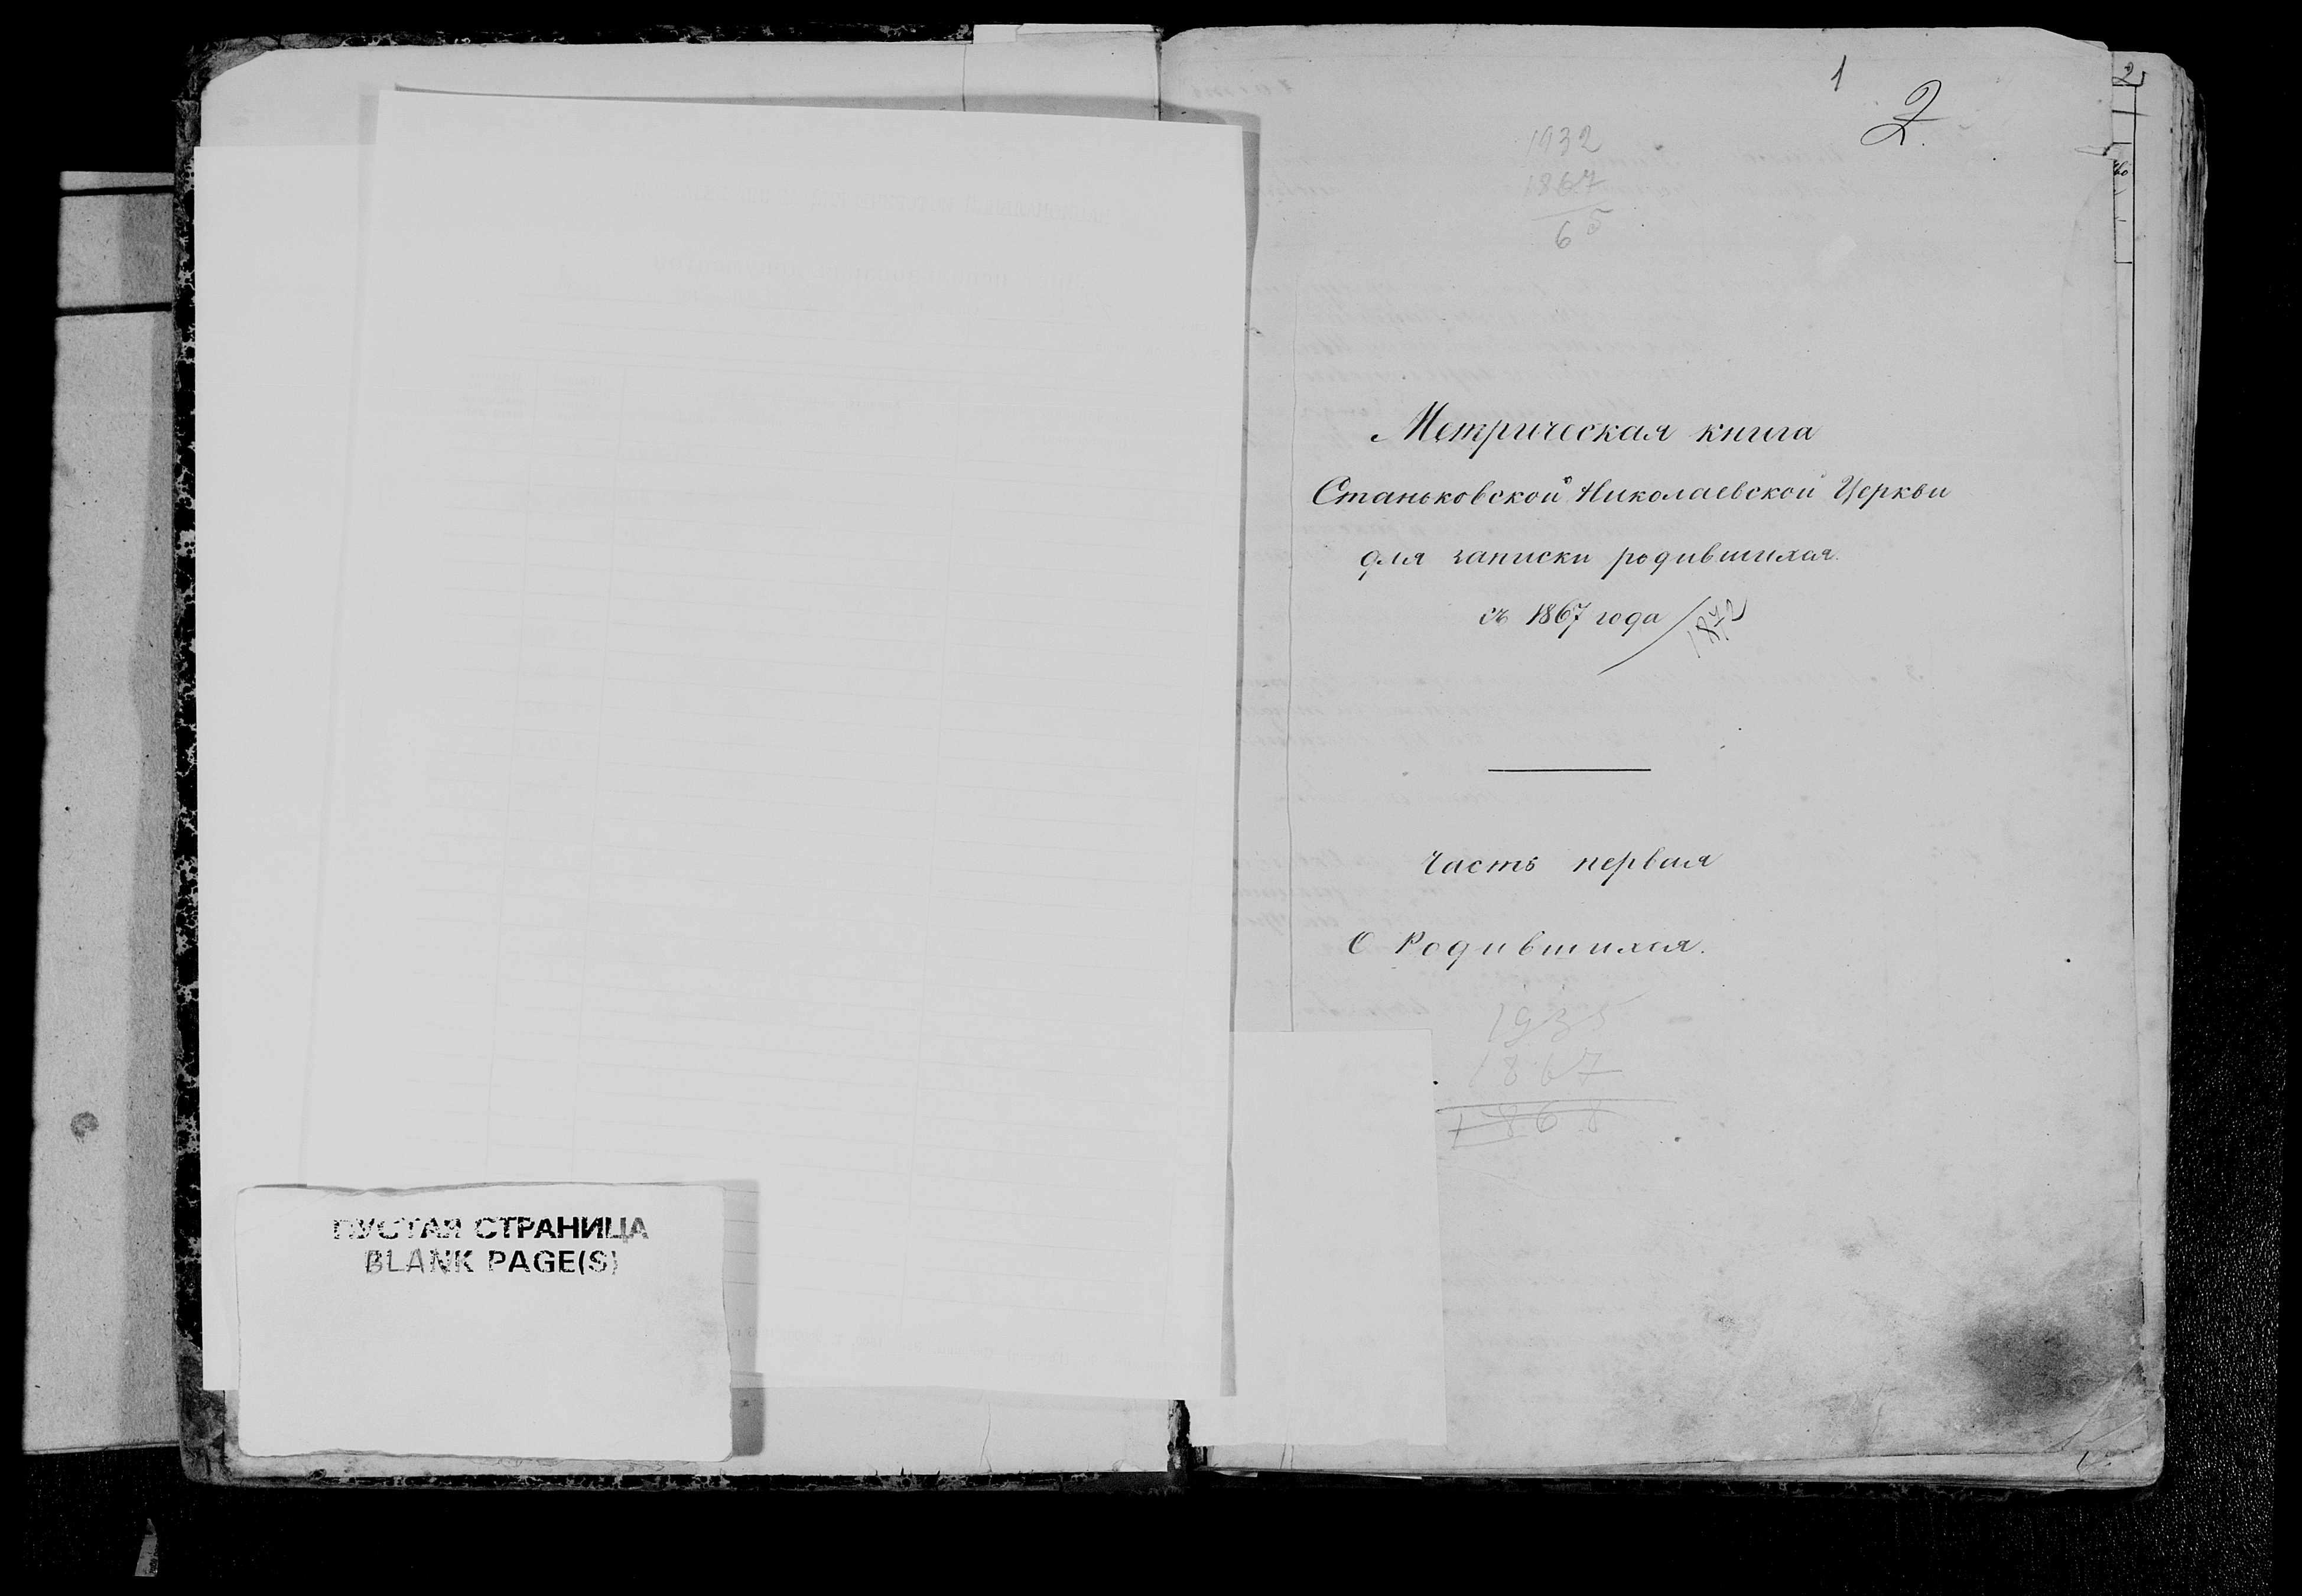 ПУСТАЯ СТРАНИЦА
BLANK PAGE(S)
1
2.
2
1932
1867
65
Метрическая книга
Станьковской Николаевской Церкви
для записки родившихся
съ 1867 года / 1872
Часть первая
О Родившихся.
1935
1867
1868